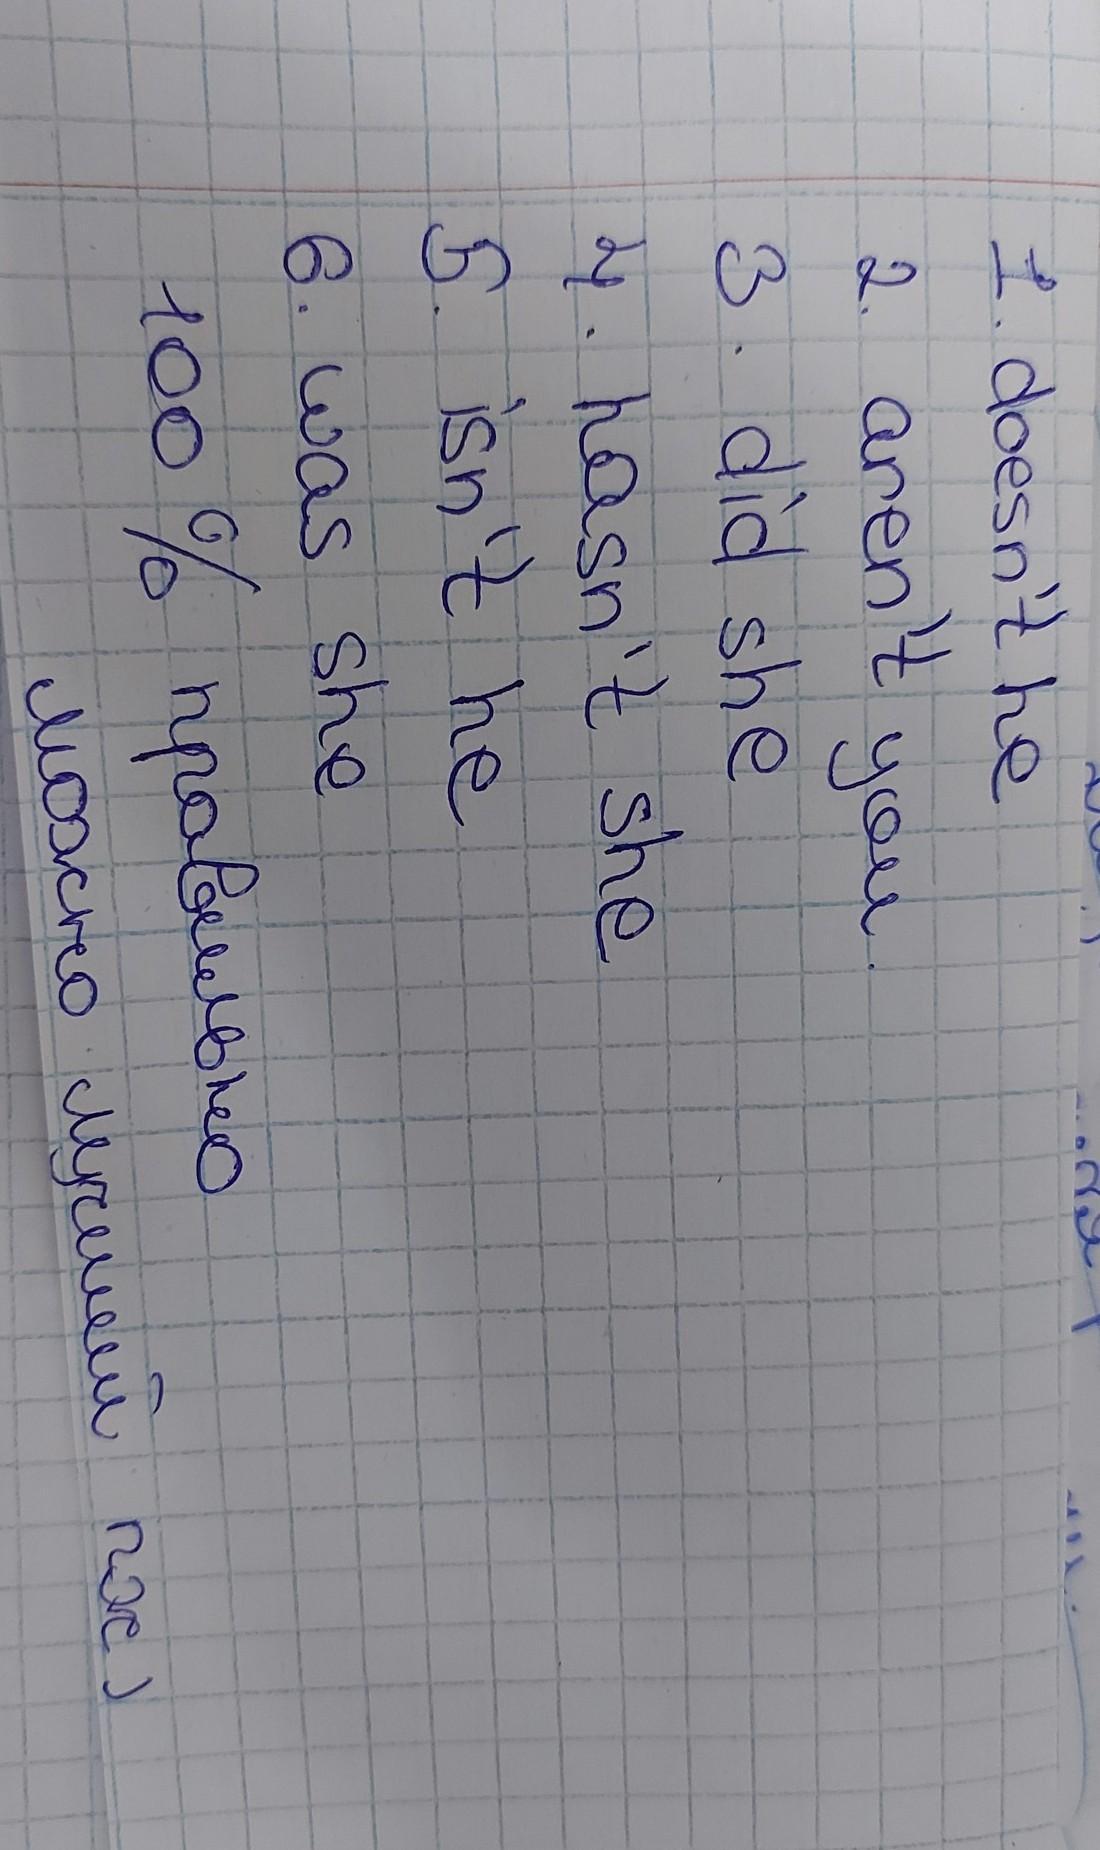 1. doesn't he
2. aren't you.
3. did she
4. hasn't she
5. isn't he
6. was she
100 % правильно
Можно лучший пж)